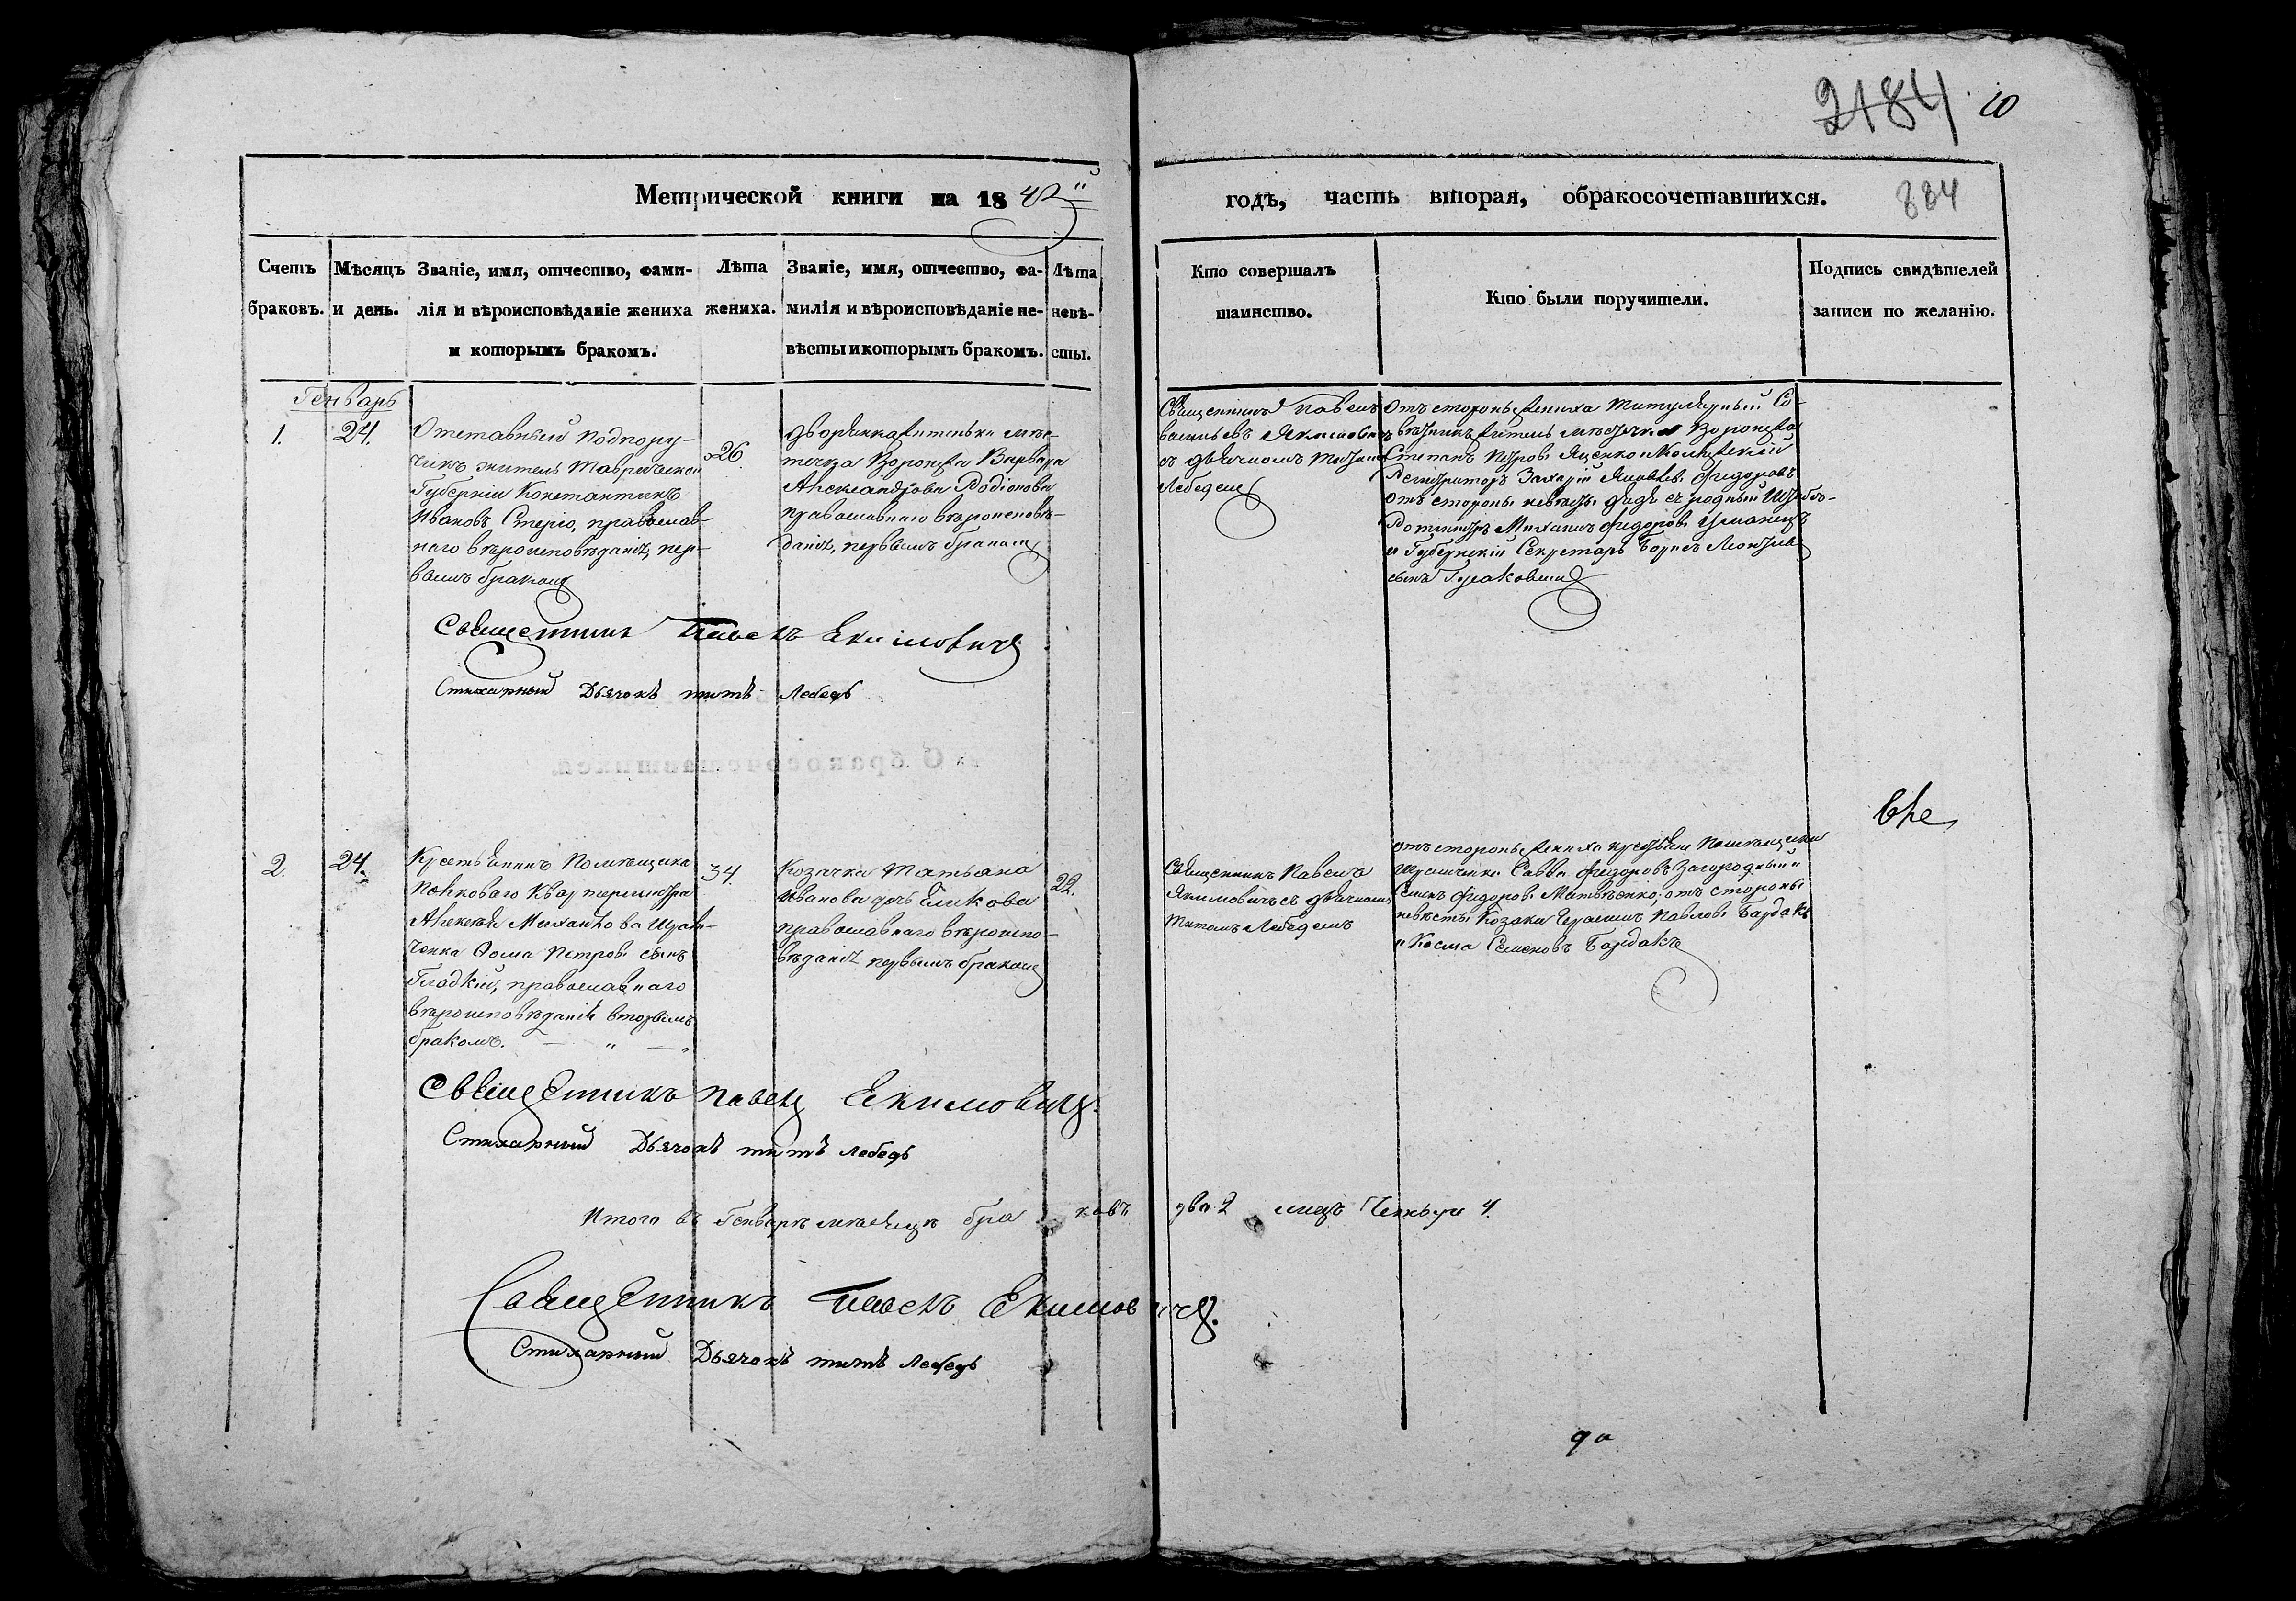 2184
10
Метрической книги на 1842
годъ, часть вторая, обракосочетавшихся.
884
Счетъ браковъ.
Мѣсяцъ и день.
Званіе, имя, отчество, фами-
лія и вѣроисповѣданіе жениха
и которымъ бракомъ.
Лѣта
жениха.
Званіе, имя, отчество, фа-
милія и вѣроисповѣданіе не-
вѣсты и которымъ бракомъ.
Лѣта
невѣ-
сты.
Кто совершалъ
таинство.
Кто были поручители.
Подпись свидѣтелей
записи по желанію.
Генварь
1.
24.
Отставный Подпору-
чикъ житель Таврической
Губерніи Константинъ
Ивановъ Стерio, православ-
наго вѣроисповѣданія, пер-
вымъ бракомъ
26
Дворянка жителька мѣс-
течка Воронежа Варвара
Александрова Родіонова
православнаго вѣроисповѣ-
данія, первымъ бракомъ
Священникъ Павелъ
Якимовичъ
съ дьячкомъ Титомъ
Лебедемъ
Отъ стороны жениха Титулярный Со-
вѣтникъ житель мѣстечка Воронежа
Степанъ Петровъ Яценко и Коллежскій
Регистраторъ Захарій Яковлевъ Федоровъ
отъ стороны невѣсты дядя ея родный Штабъ-
Ротмистръ Михаилъ Федоровъ Уманецъ
и Губернскій Секретарь Борисъ Леонтьевъ
сынъ
Священникъ Павелъ Екимовичъ
Стихарный Дьячокъ Титъ Лебедь
2.
24.
Крестьянинъ Помѣщика
Полковаго Квартермистра
Алексѣя Михайлова
Ѳома Петровъ сынъ
Гладкій, православнаго
вѣроисповѣданія вторымъ
бракомъ.
34.
Козачка Татьяна
Иванова дочь Еликова
православнаго вѣроиспо-
вѣданія первымъ бракомъ
22.
Священникъ Павелъ
Якимовичъ съ дьячкомъ
Титомъ Лебедемъ
отъ стороны жениха крестьяне помѣщика
Савва Федоровъ Загородный и
Семенъ Федоровъ Матвѣенко, отъ стороны
невѣсты Козаки Герасимъ Павловъ Бардакъ
и Косма Семеновъ Бардакъ
Священникъ Павелъ Екимовичъ.
Стихарный Дьячокъ Титъ Лебедь
Итого въ Генварѣ мѣсяцѣ браковъ два 2 лицъ Четыре 4.
Священникъ Павелъ Екимовичъ.
Стихарный Дьячокъ Титъ Лебедь